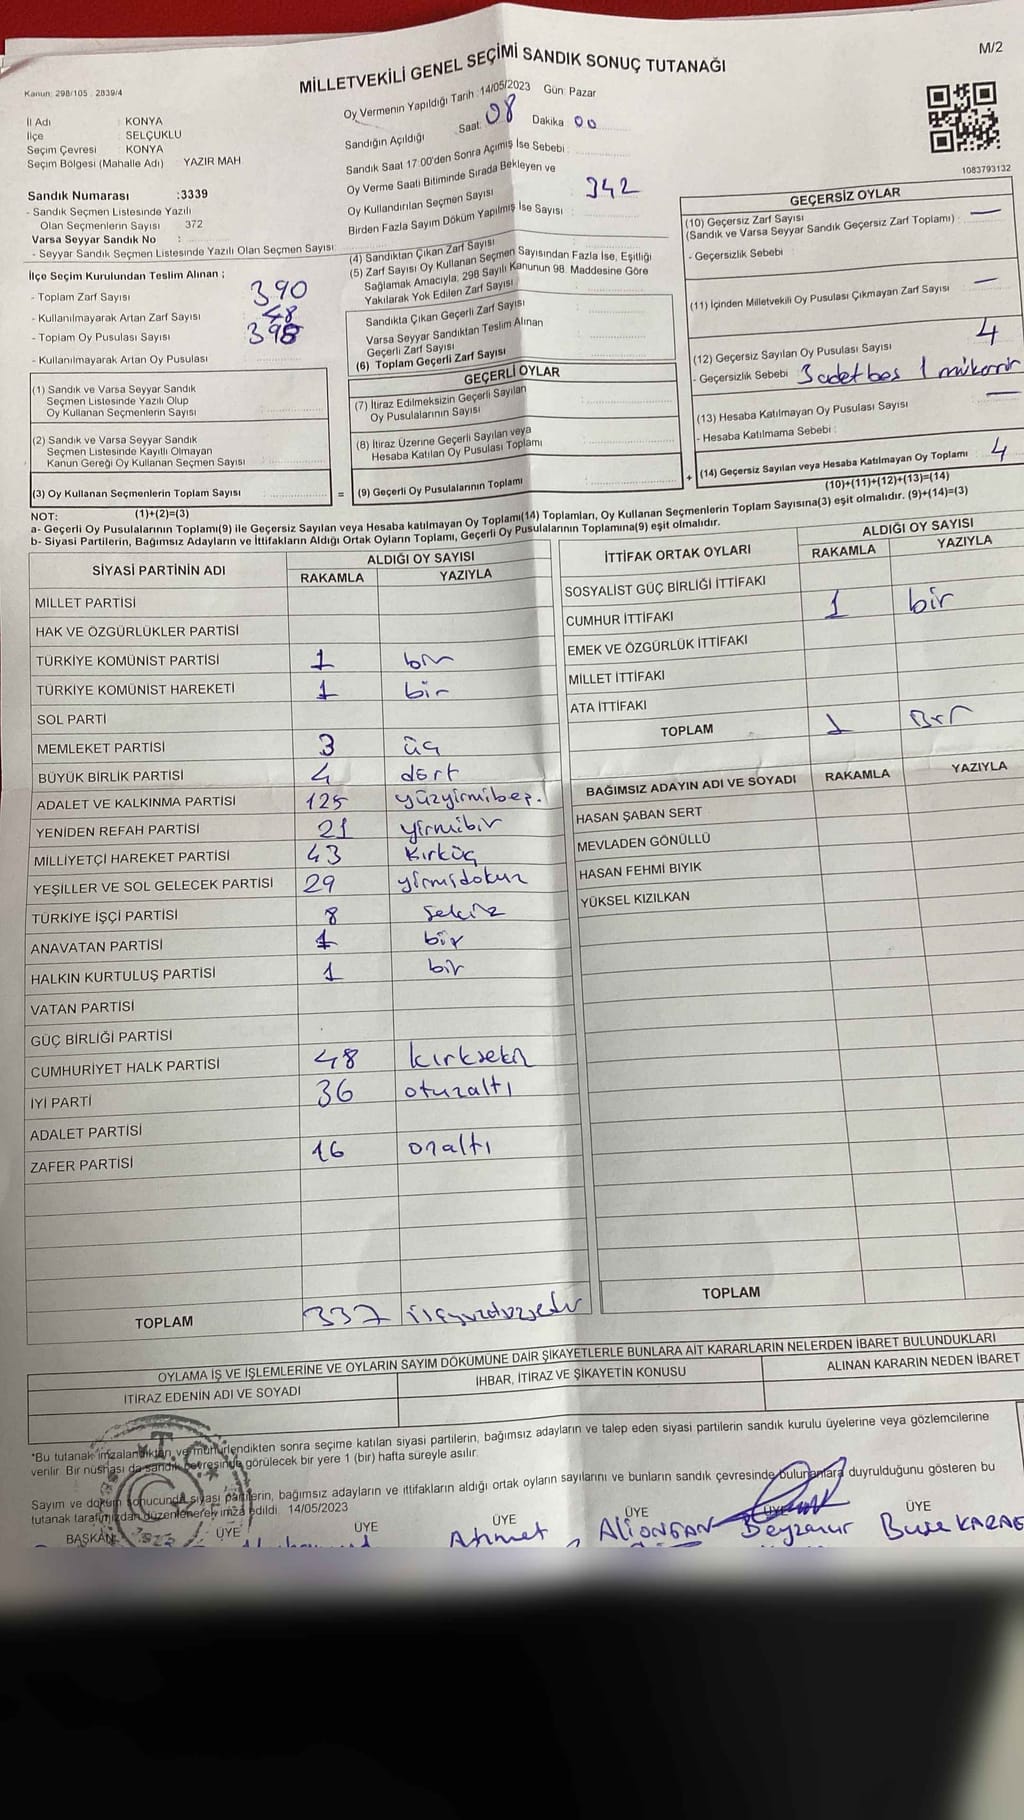 M/2
MİLLETVEKİLİ GENEL SEÇİMİ SANDIK SONUÇ TUTANAĞI
Kanun: 298/105 . 2839/4
İl Adı : KONYA
İlçe : SELÇUKLU
Seçim Çevresi : KONYA
Seçim Bölgesi (Mahalle Adı) YAZIR MAH
Sandık Numarası :3339
- Sandık Seçmen Listesinde Yazılı
Olan Seçmenlerin Sayısı : 372
Varsa Seyyar Sandık No :
- Seyyar Sandık Seçmen Listesinde Yazılı Olan Seçmen Sayısı:
Oy Vermenin Yapıldığı Tarih :14/05/2023 Gün: Pazar
Sandığın Açıldığı Saat: 08 Dakika 00
Sandık Saat 17:00'den Sonra Açımış İse Sebebi :
Oy Verme Saati Bitiminde Sırada Bekleyen ve
Oy Kullandırılan Seçmen Sayısı : 342
Birden Fazla Sayım Döküm Yapılmış İse Sayısı :
1083793132
İlçe Seçim Kurulundan Teslim Alınan ;
- Toplam Zarf Sayısı 390
- Kullanılmayarak Artan Zarf Sayısı 48
- Toplam Oy Pusulası Sayısı 398
- Kullanılmayarak Artan Oy Pusulası
(1) Sandık ve Varsa Seyyar Sandık
Seçmen Listesinde Yazılı Olup
Oy Kullanan Seçmenlerin Sayısı
(2) Sandık ve Varsa Seyyar Sandık
Seçmen Listesinde Kayıtlı Olmayan
Kanun Gereği Oy Kullanan Seçmen Sayısı
(3) Oy Kullanan Seçmenlerin Toplam Sayısı
(4) Sandıktan Çıkan Zarf Sayısı
(5) Zarf Sayısı Oy Kullanan Seçmen Sayısından Fazla İse, Eşitliği
Sağlamak Amacıyla; 298 Sayılı Kanunun 98. Maddesine Göre
Yakılarak Yok Edilen Zarf Sayısı
Sandıkta Çıkan Geçerli Zarf Sayısı
Varsa Seyyar Sandıktan Teslim Alınan
Geçerli Zarf Sayısı
(6) Toplam Geçerli Zarf Sayısı
GEÇERLİ OYLAR
(7) İtiraz Edilmeksizin Geçerli Sayılan
Oy Pusulalarının Sayısı
(8) İtiraz Üzerine Geçerli Sayılan veya
Hesaba Katılan Oy Pusulası Toplamı
= (9) Geçerli Oy Pusulalarının Toplamı
GEÇERSİZ OYLAR
(10) Geçersiz Zarf Sayısı
(Sandık ve Varsa Seyyar Sandık Geçersiz Zarf Toplamı) : —
- Geçersizlik Sebebi :
(11) İçinden Milletvekili Oy Pusulası Çıkmayan Zarf Sayısı —
(12) Geçersiz Sayılan Oy Pusulası Sayısı 4
- Geçersizlik Sebebi 3 adet boş 1 mükerrir
(13) Hesaba Katılmayan Oy Pusulası Sayısı —
- Hesaba Katılmama Sebebi :
+ (14) Geçersiz Sayılan veya Hesaba Katılmayan Oy Toplamı 4
NOT: (1)+(2)=(3)
(10)+(11)+(12)+(13)=(14)
a- Geçerli Oy Pusulalarının Toplamı(9) ile Geçersiz Sayılan veya Hesaba katılmayan Oy Toplamı(14) Toplamları, Oy Kullanan Seçmenlerin Toplam Sayısına(3) eşit olmalıdır. (9)+(14)=(3)
b- Siyasi Partilerin, Bağımsız Adayların ve İttifakların Aldığı Ortak Oyların Toplamı, Geçerli Oy Pusulalarının Toplamına(9) eşit olmalıdır.
SİYASİ PARTİNİN ADI ALDIĞI OY SAYISI
RAKAMLA YAZIYLA
MİLLET PARTİSİ
HAK VE ÖZGÜRLÜKLER PARTİSİ
TÜRKİYE KOMÜNİST PARTİSİ 1 bir
TÜRKİYE KOMÜNİST HAREKETİ 1 bir
SOL PARTİ
MEMLEKET PARTİSİ 3 üç
BÜYÜK BİRLİK PARTİSİ 4 dört
ADALET VE KALKINMA PARTİSİ 125 yüzyirmibeş.
YENİDEN REFAH PARTİSİ 21 yirmibir
MİLLİYETÇİ HAREKET PARTİSİ 43 kırküç
YEŞİLLER VE SOL GELECEK PARTİSİ 29 yirmidokuz
TÜRKİYE İŞÇİ PARTİSİ 8 sekiz
ANAVATAN PARTİSİ 1 bir
HALKIN KURTULUŞ PARTİSİ 1 bir
VATAN PARTİSİ
GÜÇ BİRLİĞİ PARTİSİ
CUMHURİYET HALK PARTİSİ 48 kırksekiz
İYİ PARTİ 36 otuzaltı
ADALET PARTİSİ
ZAFER PARTİSİ 16 onaltı
TOPLAM 337 üçyüzotuzyedi
İTTİFAK ORTAK OYLARI ALDIĞI OY SAYISI
RAKAMLA YAZIYLA
SOSYALİST GÜÇ BİRLİĞİ İTTİFAKI
CUMHUR İTTİFAKI 1 bir
EMEK VE ÖZGÜRLÜK İTTİFAKI
MİLLET İTTİFAKI
ATA İTTİFAKI
TOPLAM 1 Bir
BAĞIMSIZ ADAYIN ADI VE SOYADI RAKAMLA YAZIYLA
HASAN ŞABAN SERT
MEVLADEN GÖNÜLLÜ
HASAN FEHMİ BIYIK
YÜKSEL KIZILKAN
TOPLAM
OYLAMA İŞ VE İŞLEMLERİNE VE OYLARIN SAYIM DÖKÜMÜNE DAİR ŞİKAYETLERLE BUNLARA AİT KARARLARIN NELERDEN İBARET BULUNDUKLARI
İTİRAZ EDENİN ADI VE SOYADI İHBAR, İTİRAZ VE ŞİKAYETİN KONUSU ALINAN KARARIN NEDEN İBARET
*Bu tutanak imzalandıktan ve mühürlendikten sonra seçime katılan siyasi partilerin, bağımsız adayların ve talep eden siyasi partilerin sandık kurulu üyelerine veya gözlemcilerine
verilir. Bir nüshası da sandık çevresinde görülecek bir yere 1 (bir) hafta süreyle asılır.
Sayım ve döküm sonucunda siyasi partilerin, bağımsız adayların ve ittifakların aldığı ortak oyların sayılarını ve bunların sandık çevresinde bulunanlara duyrulduğunu gösteren bu
tutanak tarafımızdan düzenlenerek imza edildi. 14/05/2023
BAŞKAN ÜYE ÜYE ÜYE ÜYE ÜYE ÜYE
Ahmet Ali ONGAN Beyzanur Buse